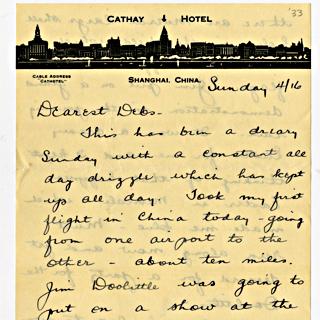 '33
CATHAY HOTEL
CABLE ADDRESS
"CATHOTEL"
SHANGHAI, CHINA.
Sunday 4/16
Dearest Debs-
This has been a dreary
Sunday with a constant all
day drizzle which has kept
up all day. Took my first
flight in China today - going
from one airport to the
other - about ten miles.
Jim Doolittle was going to
put on a show at the